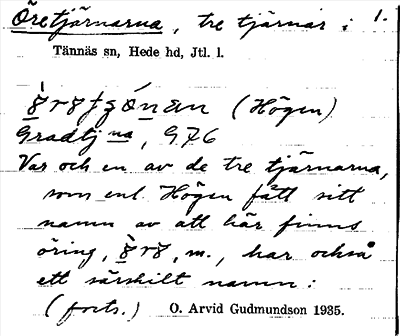 Öretjärnarna, tre tjärnar i 1.
Tännäs sn, Hede hd, Jtl. l.
(Högen)
Gradtj na, G76
Var och en av de tre tjärnarna,
som enl. Högen fått sitt
namn av att här finns
öring, m., har också
ett särskilt namn:
(forts.) O. Arvid Gudmundson 1935.